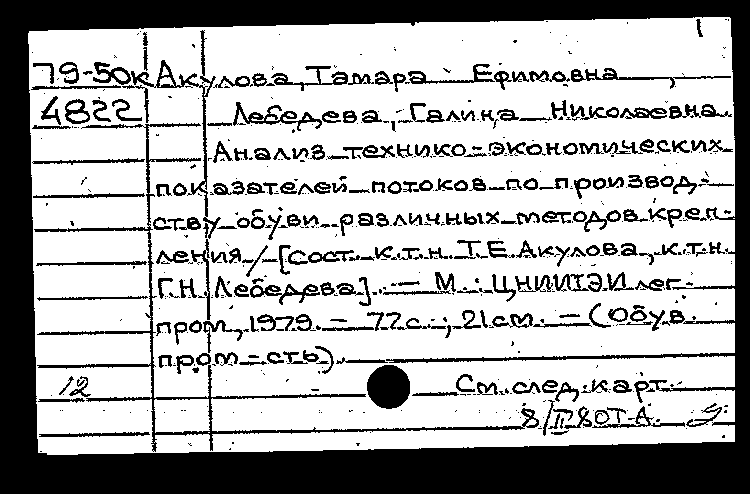 1
79-50к Акулова, Тамара Ефимовна,
4822 Лебедева, Галина Николаевна.
Анализ технико-экономических
показателей потоков по производ-
ству обуви различных методов креп-
ления / [Сост. к.т.н. Т.Е. Акулова, к.т.н.
Г.Н. Лебедева]. — М.: ЦНИИТЭИлег-
пром, 1979. — 77с.; 21см. — (Обув.
пром-сть).
12 См. след. карт.
8/II 80Т-А.